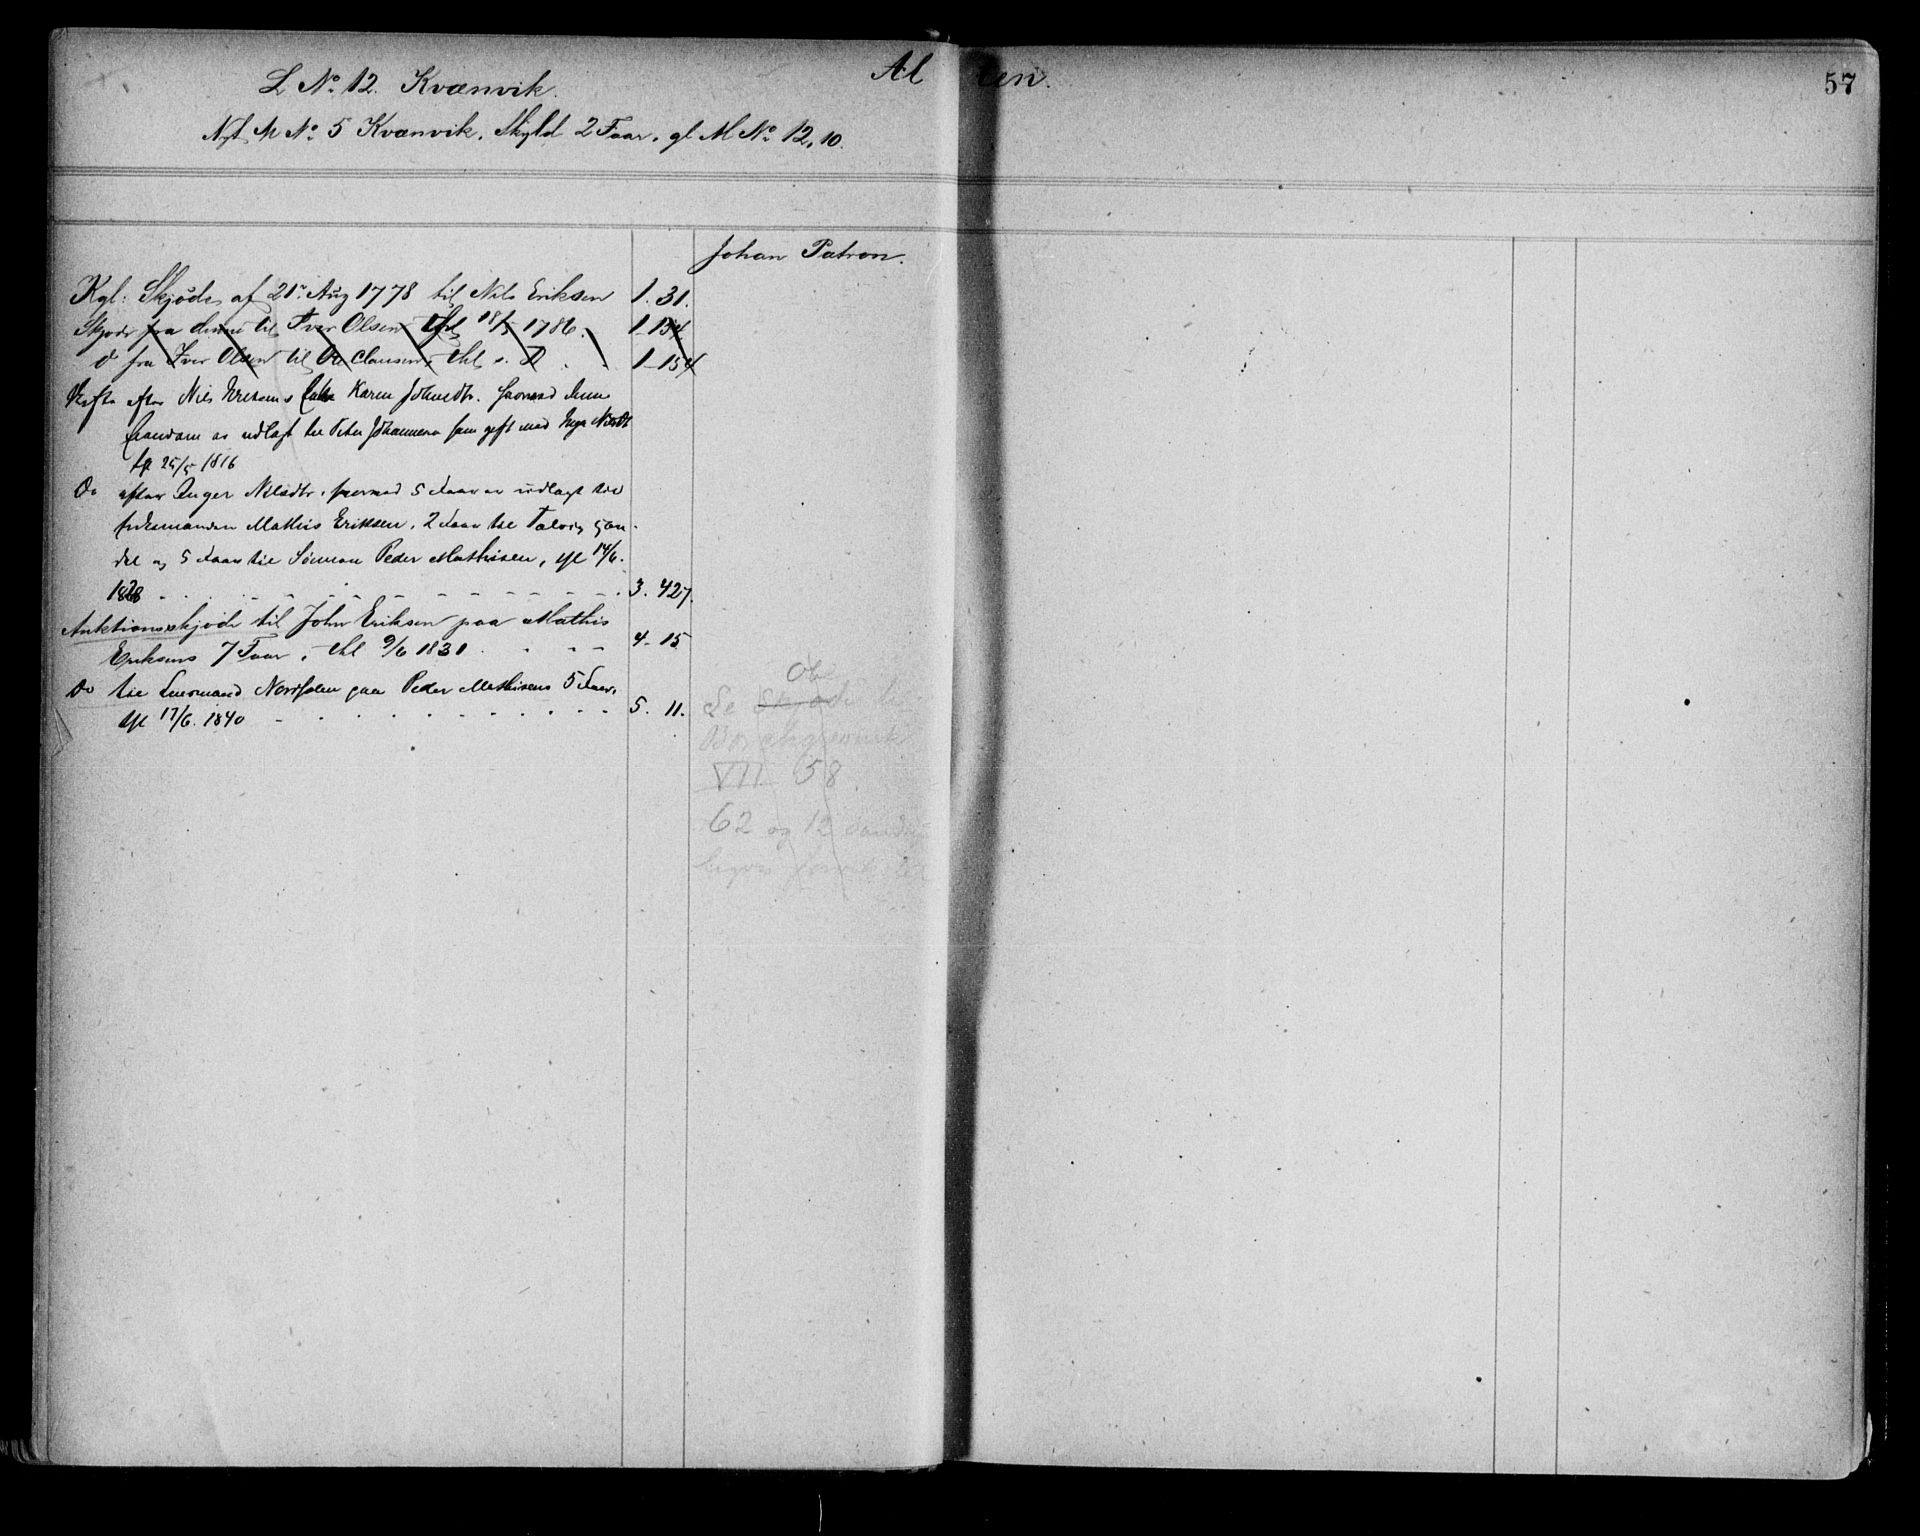 Al ten.
57
L No 12. Kvænvik.
Nyt M No 5 Kvænvik. Skyld 2 Faar. gl M No 12,10.
Johan Patron.
Kgl: Skjøde af 21r Aug 1778 til Nils Eriksen 1. 31.
Skjøde fra denne til Iver Olsen Thl 18/5 1786. 1-154
do fra Iver Olsen til Ole Clausen, thl s. D. 1-154
Skifte efter Nils Eriksens Enke Karen Johnsdtr. hvorved denne
Eiendom er udlagt til Peter Johannesen som gift med Inger Nilsdt
25/5 1816
Do efter Inger Nilsdtr. hvorved 5 Faar er udlagt til
Enkemanden Mathis Eriksen, 2 Faar til Talvig
og 5 Faar til Sønnen Peder Mathisen, thl 14/6.
1828 3. 427.
Auktionsskjøde til John Eriksen paa Mathis
Eriksens 7 Faar, thl 9/6 1831 4-15
Do til Lensmand paa Peder Mathisens 5 Faar,
thl 17/6. 1840 5. 11.
Se Skjøde
VII 58
62 og 12